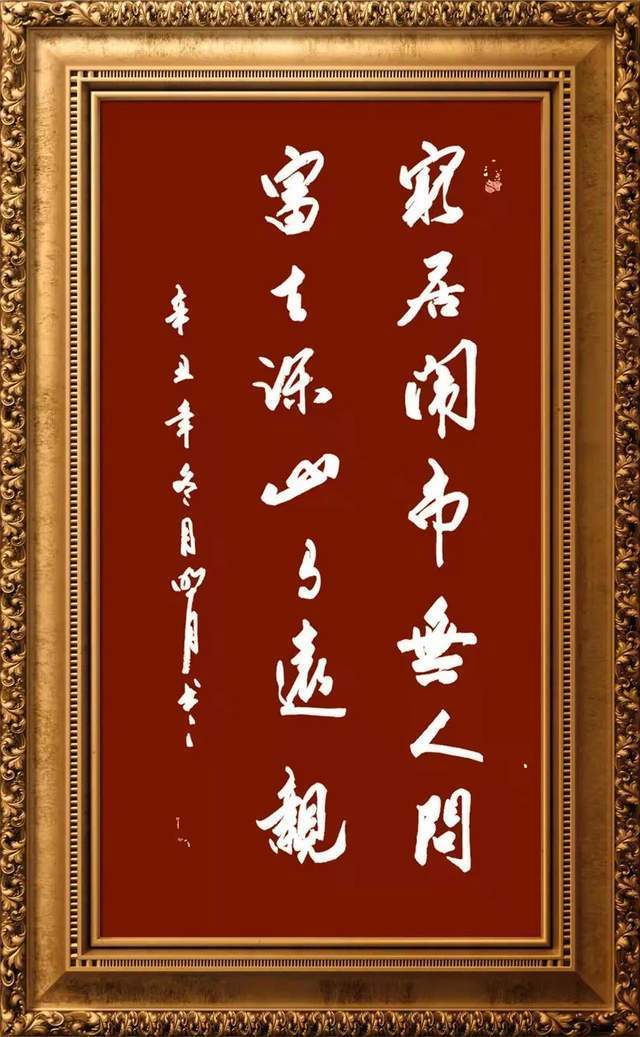 窮居闹市無人問
富在深山有遠親
辛丑年冬月